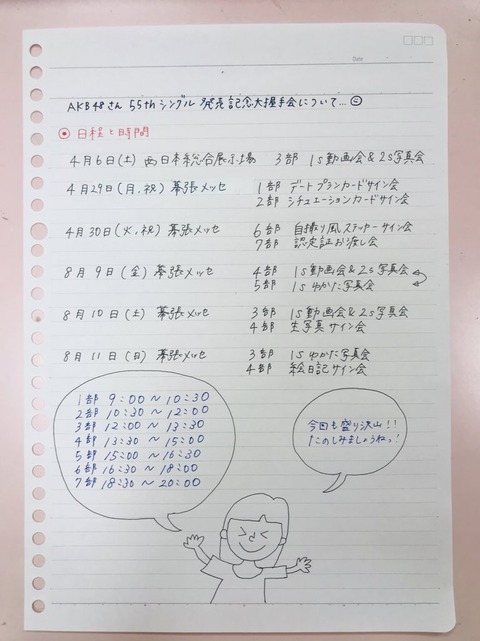 Date
AKB48さん 55thシングル 発売記念大握手会について…☺
◉ 日程と時間
4月6日(土) 西日本総合展示場 3部 1s動画会&2s写真会
4月29日(月,祝) 幕張メッセ 1部 デートプランカードサイン会
2部 シチュエーションカードサイン会
4月30日(火,祝) 幕張メッセ 6部 自撮り風ステッカーサイン会
7部 認定証お渡し会
8月9日(金) 幕張メッセ 4部 1s動画会&2s写真会
5部 1sゆかた写真会
8月10日(土) 幕張メッセ 3部 1s動画会&2s写真会
4部 生写真サイン会
8月11日(日) 幕張メッセ 3部 1sゆかた写真会
4部 絵日記サイン会
1部 9:00 〜 10:30
2部 10:30 〜 12:00
3部 12:00 〜 13:30
4部 13:30 〜 15:00
5部 15:00 〜 16:30
6部 16:30 〜 18:00
7部 18:30 〜 20:00
今回も盛り沢山!!
たのしみましょうねっ!